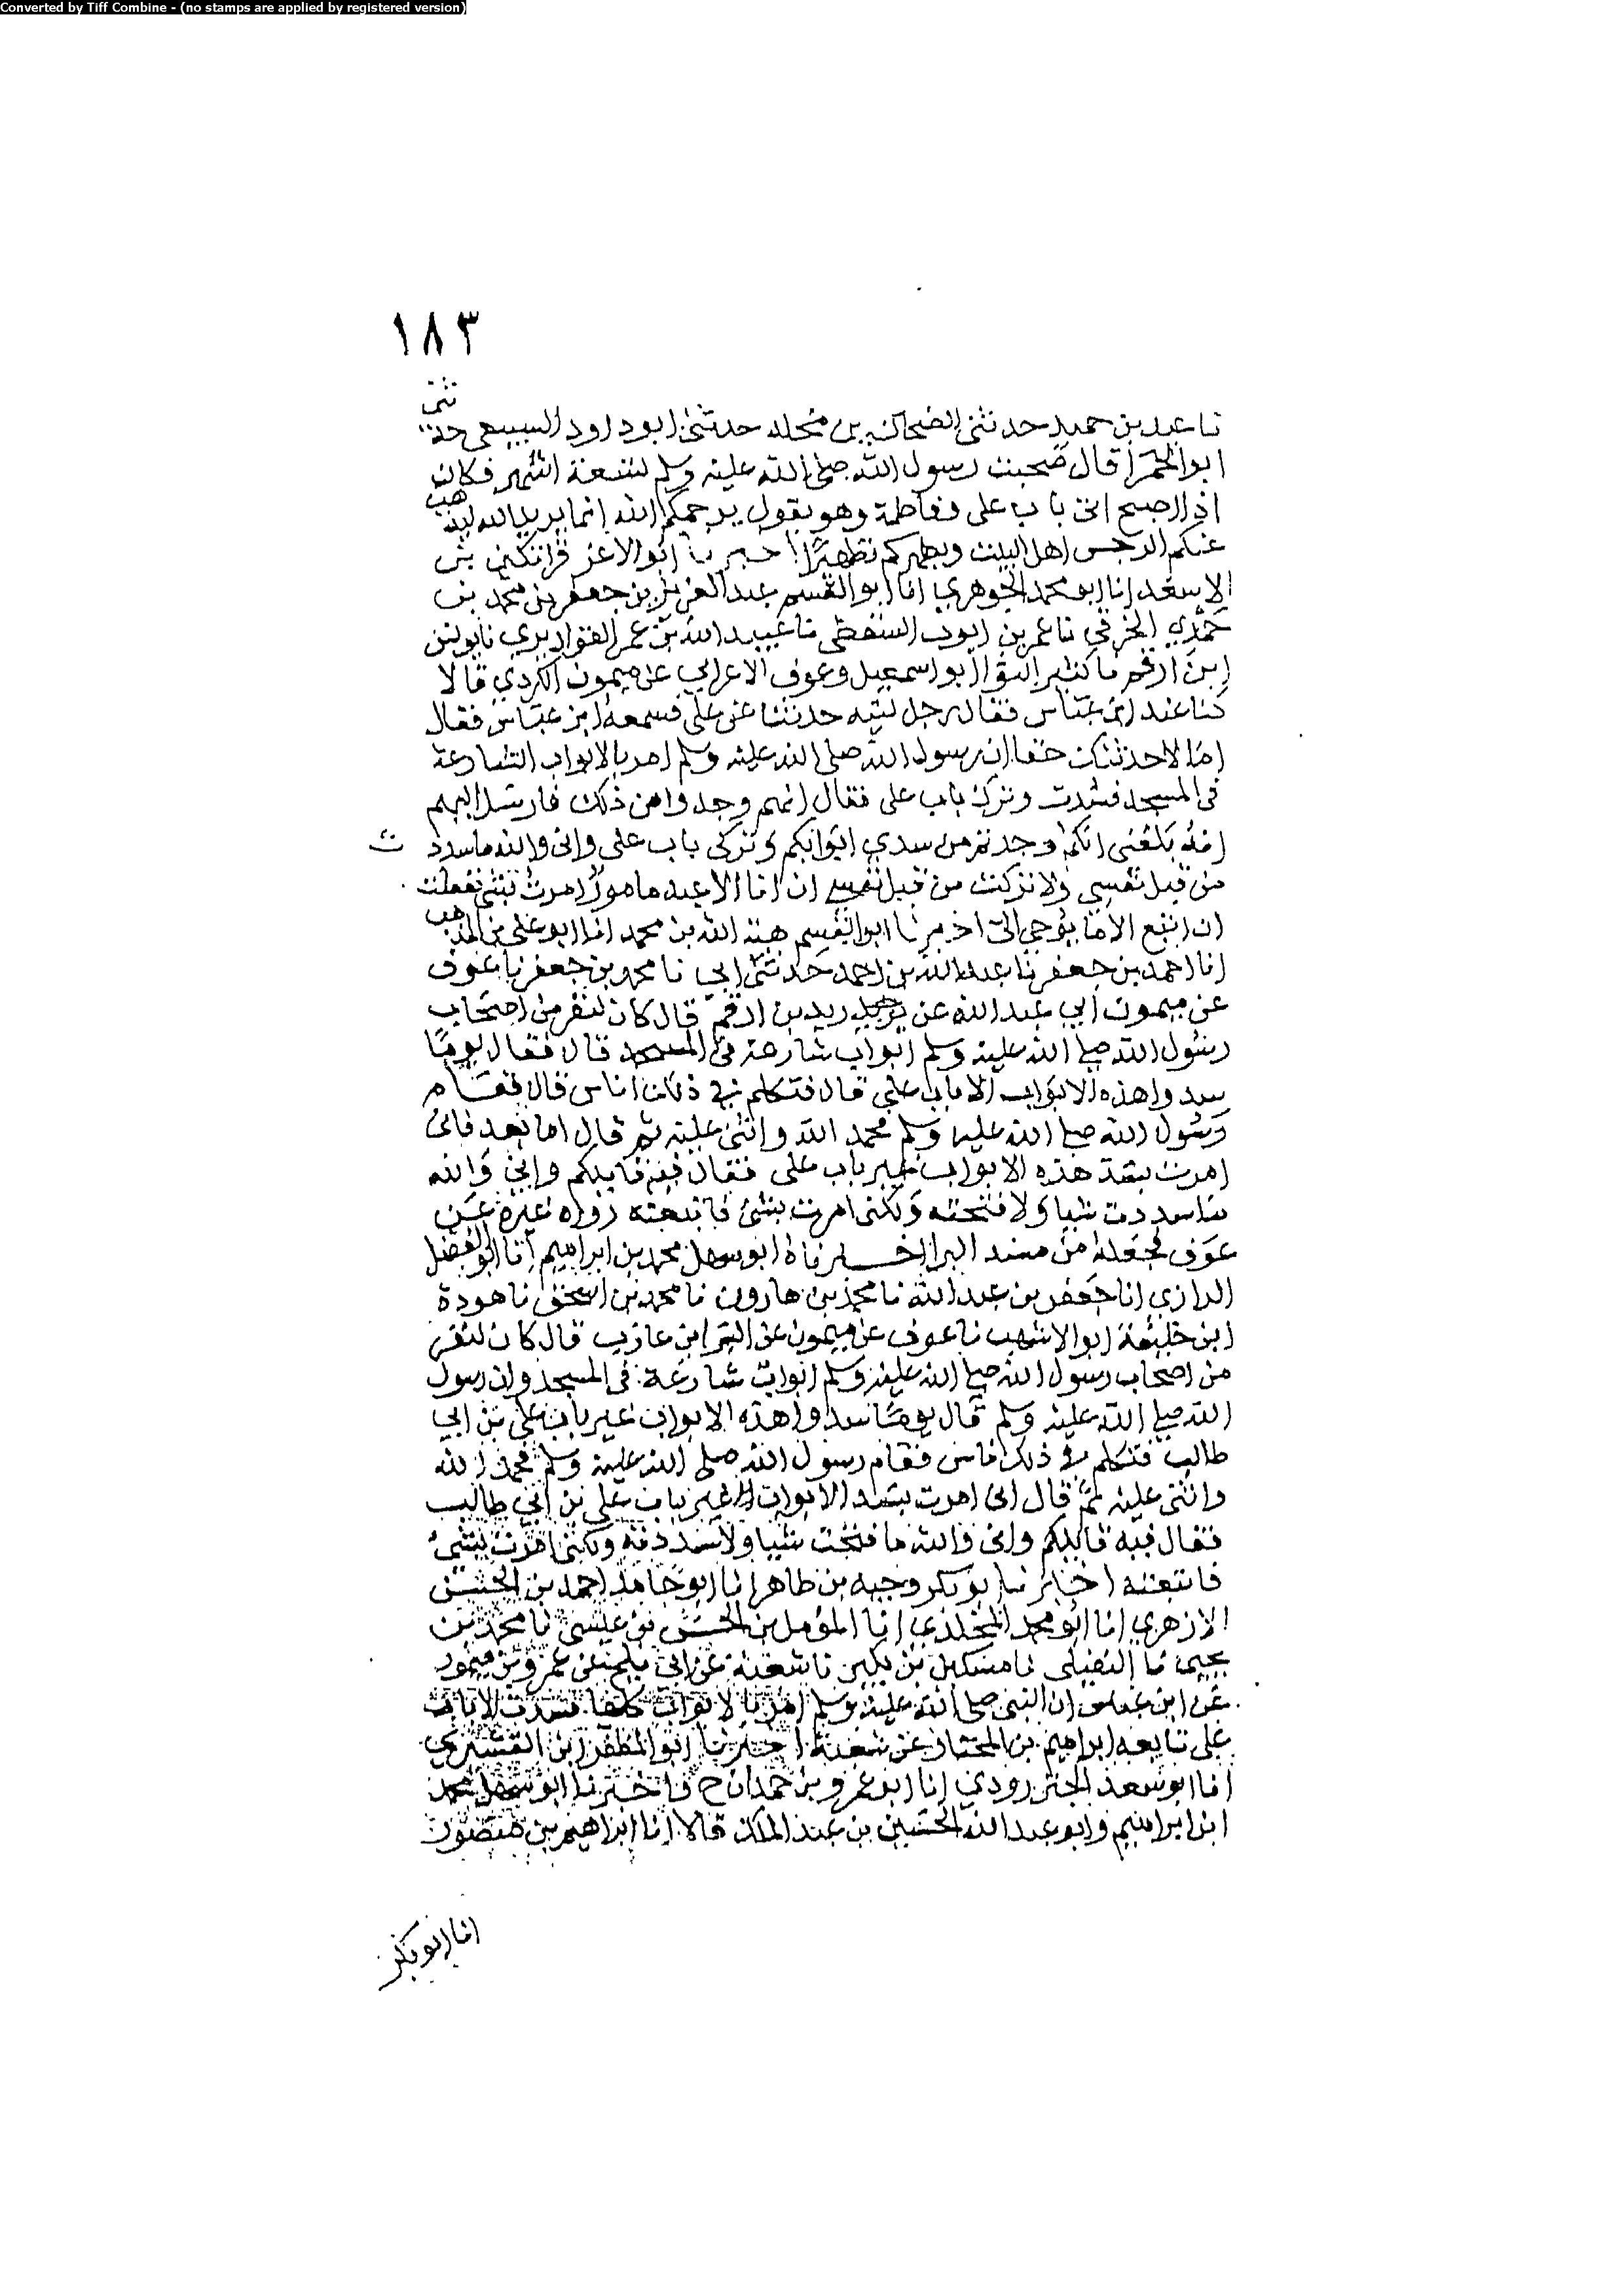 Converted by Tiff Combine - (no stamps are applied by registered version)
١٨٣
نا عبد بن حميد حدثني الضحاك بن مخلد حدثني ابو داود السبيعي حدثني
ابو الحمرا قال صحبت رسول الله صلى الله عليه وسلم تسعة اشهر فكان
اذا اصبح اتى باب على وفاطمة وهو يقول يرحمكم الله انما يريد الله ليذهب
عنكم الرجس اهل البيت ويطهركم تطهيرا اخبرنا ابو الاعز قراتكين بن
الاسعد انا ابو محمد الجوهري انا ابو القسم عبد العزيز بن جعفر بن محمد بن
حمدي الخرقي نا عمر بن ايوب السقطي نا عبيد الله بن عمر القواريري نا يونس
ابن ارقم نا كثير النوا ابو اسمعيل وعوف الاعرابي عن ميمون الكردي قالا
كنا عند ابن عباس فقال رجل ليته حدثنا عن على فسمعه ابن عباس فقال
اما لاحدثنك حقا ان رسول الله صلى الله عليه وسلم امر بالابواب الشارعة
فى المسجد فسدت وترك باب على فقال انهم وجدوا من ذلك فارسل اليهم
انه بلغنى انكم وجدتم من سدي ابوابكم وتركى باب على وانى والله ما سددت
من قبل نفسي ولا تركت من قبل نفسي ان انا الا عبد مامور امرت بشى ففعلت
ان اتبع الا ما يوحي الي اخبرنا ابو القسم هبة الله بن محمد انا ابو على بن المذهب
انا احمد بن جعفر نا عبد الله بن احمد حدثنى ابي نا محمد بن جعفر نا عوف
عن ميمون ابي عبد الله عن زيد بن ارقم قال كان لنفر من اصحاب
رسول الله صلى الله عليه وسلم ابواب شارعة فى المسجد قال فقال يوما
سدوا هذه الابواب الا باب على قال فتكلم فى ذلك اناس قال فقام
رسول الله صلى الله عليه وسلم فحمد الله واثنى عليه ثم قال اما بعد فانى
امرت بسد هذه الابواب غير باب على فقال فيه قايلكم واني والله
ما سددت شيا ولا فتحته ولكنى امرت بشئ فاتبعته رواه غيره عن
عوف فجعله من مسند البرا اخبرناه ابو سهل محمد بن ابراهيم انا ابو الفضل
الرازي انا جعفر بن عبد الله نا محمد بن هارون نا محمد بن اسحق نا هودة
ابن خليفة ابو الاشهب نا عوف عن ميمون عن البرا بن عازب قال كان لنفر
من اصحاب رسول الله صلى الله عليه وسلم ابواب شارعة فى المسجد وان رسول
الله صلى الله عليه وسلم قال يوما سدوا هذه الابواب غير باب على بن ابي
طالب فتكلم فى ذلك ناس فقام رسول الله صلى الله عليه وسلم فحمد الله
واثنى عليه ثم قال انى امرت بسد الابواب غير باب على بن ابي طالب
فقال فيه قايلكم وانى والله ما فتحت شيا ولا سددته ولكنى امرت بشئ
فاتبعته اخبرنا ابو بكر وجيه بن طاهر انا ابو حامد احمد بن الحسن
الازهري انا ابو محمد المخلدي انا المؤمل بن الحسن بن عيسى نا محمد بن
يحيى نا النفيلى نا مسكين بن بكير نا شعبة عن ابي بلج عن عمرو بن ميمون
عن ابن عباس ان النبى صلى الله عليه وسلم امر بالابواب كلها فسدت الا باب
على تابعه ابراهيم بن المختار عن شعبة اخبرنا ابو المظفر ابن القشيري
انا ابو سعد الجنزرودي انا ابو عمرو بن حمدان ح واخبرنا ابو سهل محمد
ابن ابراهيم وابو عبد الله الحسين بن عبد الملك قالا انا ابراهيم بن منصور
انا ابو بكر